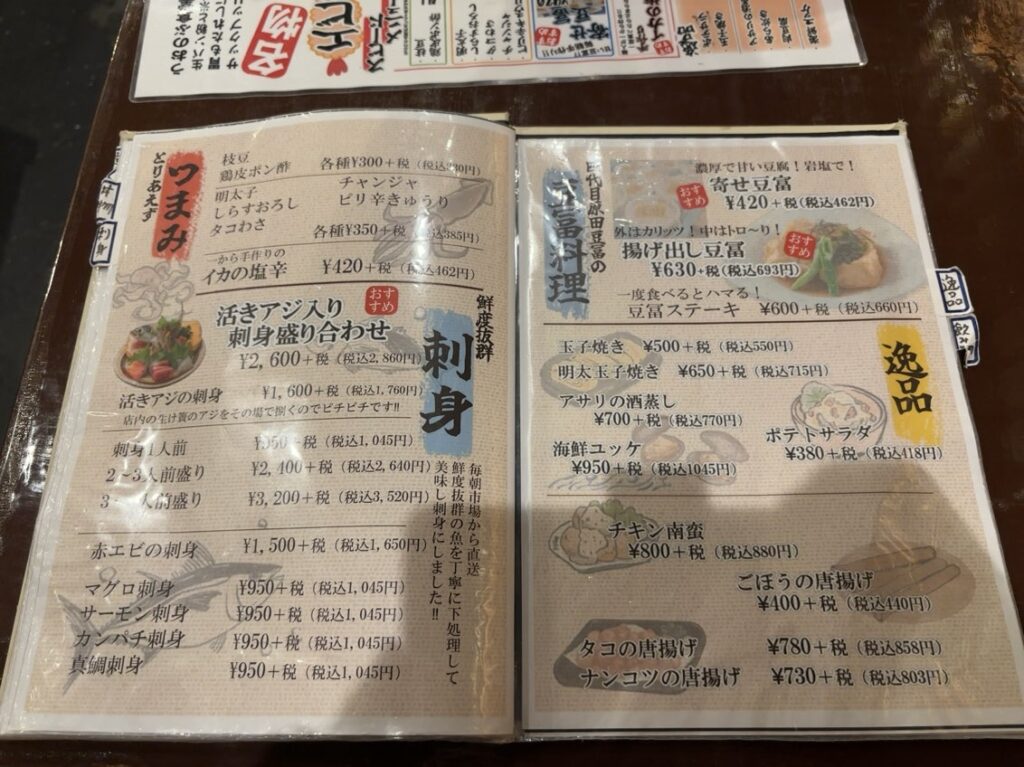 名物
エビ
スピード
メニュー
とりあえず
つまみ
枝豆
鶏皮ポン酢
各種¥300+税(税込330円)
明太子
しらすおろし
タコわさ
チャンジャ
ピリ辛きゅうり
各種¥350+税(税込385円)
一から手作りの
イカの塩辛 ¥420+税(税込462円)
鮮度抜群
刺身
活きアジ入り
刺身盛り合わせ
おすすめ
¥2,600+税(税込2,860円)
活きアジの刺身 ¥1,600+税(税込1,760円)
店内の生け簀のアジをその場で捌くのでピチピチです!!
刺身1人前 ¥950+税(税込1,045円)
2~3人前盛り ¥2,400+税(税込2,640円)
人前盛り ¥3,200+税(税込3,520円)
毎朝市場から直送
鮮度抜群の魚を丁寧に下処理して
美味し刺身にしました!!
赤エビの刺身 ¥1,500+税(税込1,650円)
マグロ刺身 ¥950+税(税込1,045円)
サーモン刺身 ¥950+税(税込1,045円)
カンパチ刺身 ¥950+税(税込1,045円)
真鯛刺身 ¥950+税(税込1,045円)
代目原田豆冨の
冨料理
濃厚で甘い豆腐!岩塩で!
おすすめ
寄せ豆冨
¥420+税(税込462円)
外はカリッツ!中はトロ~り!
揚げ出し豆冨
おすすめ
¥630+税(税込693円)
一度食べるとハマる!
豆冨ステーキ ¥600+税(税込660円)
逸品
玉子焼き ¥500+税(税込550円)
明太玉子焼き ¥650+税(税込715円)
アサリの酒蒸し
¥700+税(税込770円)
ポテトサラダ
¥380+税(税込418円)
海鮮ユッケ
¥950+税(税込1045円)
チキン南蛮
¥800+税(税込880円)
ごぼうの唐揚げ
¥400+税(税込440円)
タコの唐揚げ ¥780+税(税込858円)
ナンコツの唐揚げ ¥730+税(税込803円)
逸品